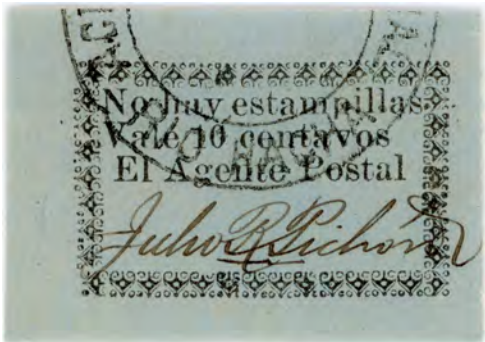 No hay estampillas.
Vale 10 centavos
El Agente Postal
Julio R. Pichón
RIO HACHA